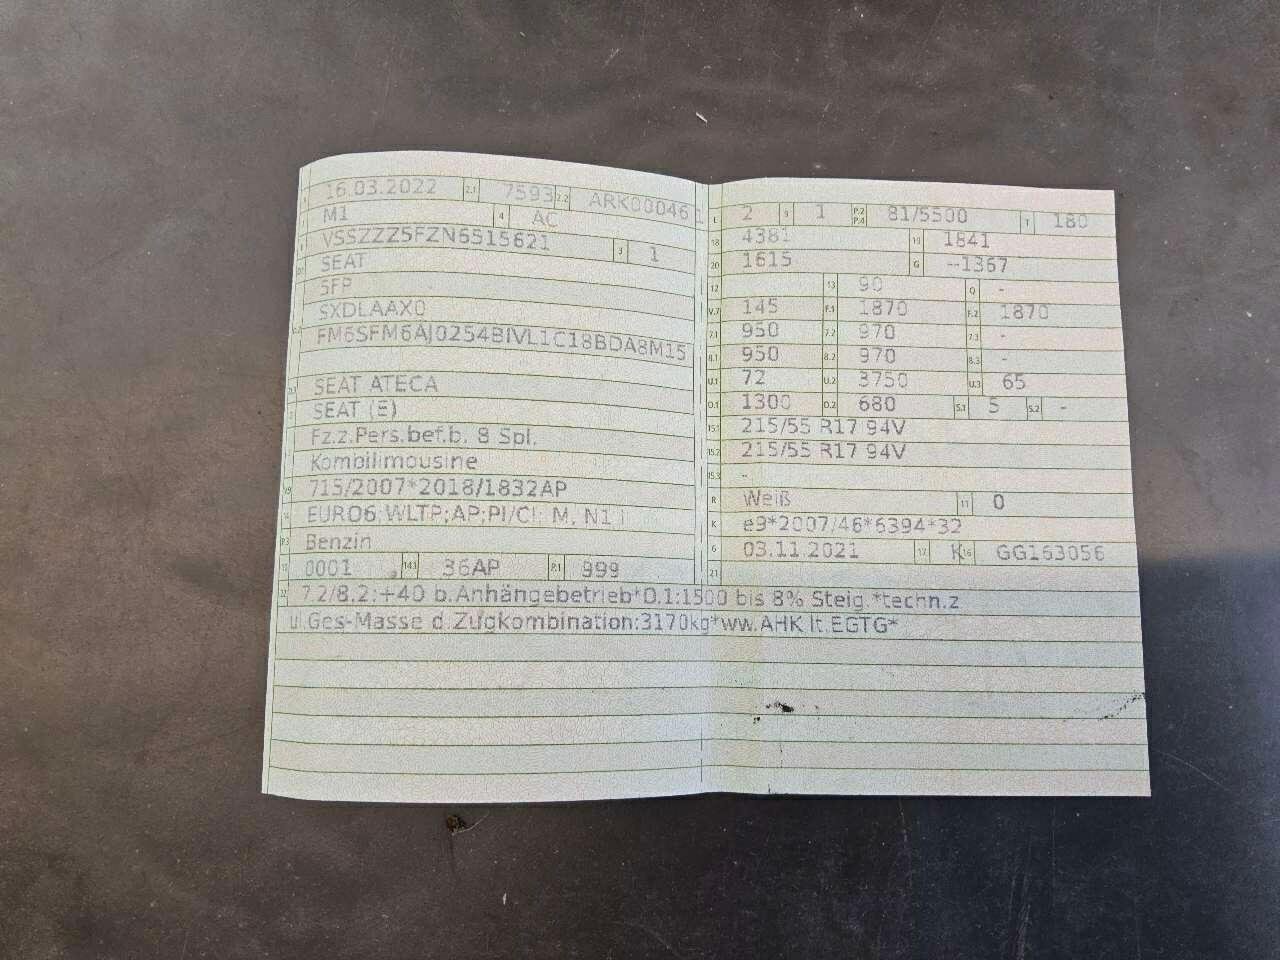 16.03.2022 2.1 7593 2.2 ARK00046 1
M1 4 AC
VSSZZZ5FZN6515621 3 1
SEAT
5FP
SXDLAAX0
FM6SFM6AJ0254BIVL1C18BDA8M15
SEAT ATECA
SEAT (E)
Fz.z.Pers.bef.b. 8 Spl.
Kombilimousine
715/2007*2018/1832AP
EURO6;WLTP;AP;PI/CI; M, N1 I
P.3 Benzin
0001 14.1 36AP P.1 999
L 2 9 1 P.2 P.4 81/5500 T 180
18 4381 19 1841
20 1615 G --1367
12 13 90 Q -
V.7 145 F.1 1870 F.2 1870
7.1 950 7.2 970 7.3 -
8.1 950 8.2 970 8.3 -
U.1 72 U.2 3750 U.3 65
O.1 1300 O.2 680 S.1 5 S.2 -
15.1 215/55 R17 94V
15.2 215/55 R17 94V
15.3 -
R Weiß 11 0
K e9*2007/46*6394*32
6 03.11.2021 17 K 16 GG163056
21
22 7.2/8.2:+40 b.Anhängebetrieb*O.1:1500 bis 8% Steig.*techn.z
ul.Ges-Masse d.Zugkombination:3170kg*ww.AHK lt.EGTG*